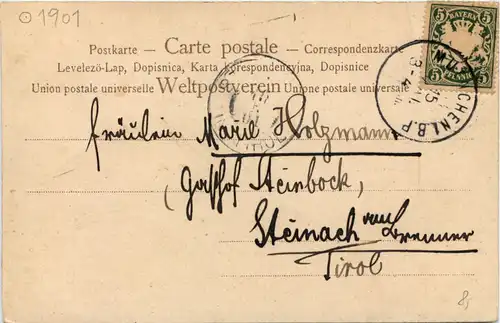 1901
Postkarte – Carte postale – Correspondenzkarte
Levelező-Lap, Dopisnica, Karta korespondencyjna, Dopisnice
Union postale universelle Weltpostverein Unione postale universale
BAYERN
5 5
PFENNIG
Fräulein Marie Holzmann
(Gasthof Steinbock,
Steinach am Brenner
Tirol